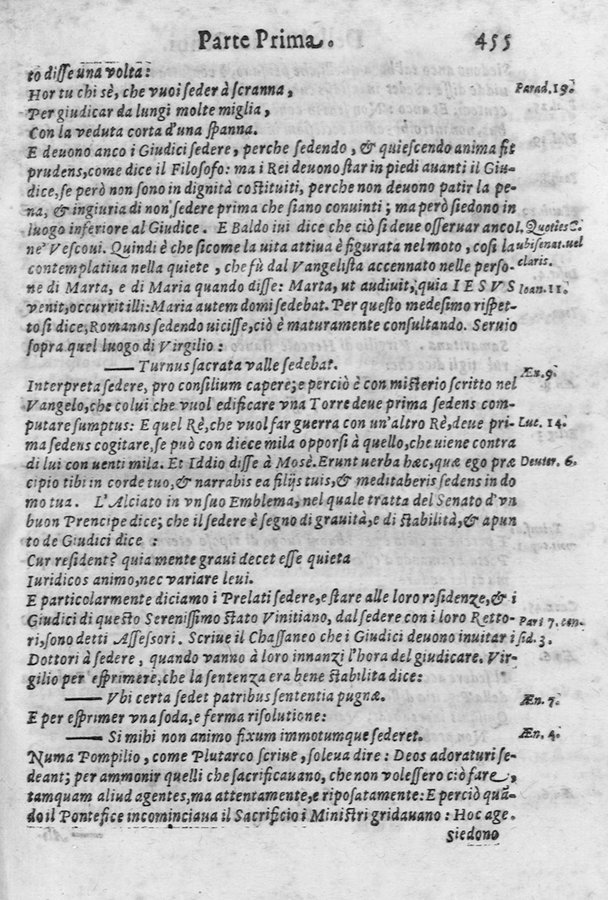 Parte Prima. 455
to disse una volta:
Hor tu chi sè, che vuoi seder à scranna, Parad. 19.
Per giudicar da lungi molte miglia,
Con la veduta corta d'una spanna.
E deuono anco i Giudici sedere, perche sedendo, & quiescendo anima fit
prudens, come dice il Filosofo: ma i Rei deuono star in piedi auanti il Giu-
dice, se però non sono in dignità costituiti, perche non deuono patir la pe-
na, & ingiuria di non sedere prima che siano conuinti; ma però siedono in
luogo inferiore al Giudice. E Baldo iui dice che ciò si deue osseruar ancol, Quoties C.
ne' Vescoui. Quindi è che sicome la uita attiua è figurata nel moto, cosi la ubi senat. uel
contemplatiua nella quiete, che fù dal Vangelista accennato nelle perso- claris.
ne di Marta, e di Maria quando disse: Marta, ut audiuit, quia IESVS Ioan. 11.
venit, occurrit illi: Maria autem domi sedebat. Per questo medesimo rispet-
to si dice, Romanos sedendo uicisse, ciò è maturamente consultando. Seruio
sopra quel luogo di Virgilio:
—— Turnus sacrata valle sedebat. Æn. 9.
Interpreta sedere, pro consilium capere; e perciò è con misterio scritto nel
Vangelo, che colui che vuol edificare vna Torre deue prima sedens com-
putare sumptus: E quel Rè, che vuol far guerra con un'altro Rè, deue pri- Luc. 14.
ma sedens cogitare, se può con diece mila opporsi à quello, che uiene contra
di lui con uenti mila. Et Iddio disse à Mosè. Erunt uerba hæc, quæ ego præ Deuter. 6.
cipio tibi in corde tuo, & narrabis ea filijs tuis, & meditaberis sedens in do
mo tua. L'Alciato in vn suo Emblema, nel quale tratta del Senato d'vn
buon Prencipe dice; che il sedere è segno di grauità, e di stabilità, & apun
to de Giudici dice :
Cur resident? quia mente graui decet esse quieta
Iuridicos animo, nec variare leui.
E particolarmente diciamo i Prelati sedere, e stare alle loro residenze, & i
Giudici di questo Serenissimo Stato Vinitiano, dal sedere con i loro Retto- Pari 7. con-
ri, sono detti Assessori. Scriue il Chassaneo che i Giudici deuono inuitar i sid. 3.
Dottori à sedere, quando vanno à loro innanzi l'hora del giudicare. Vir-
gilio per esprimere, che la sentenza era bene stabilita dice:
—— Vbi certa sedet patribus sententia pugnæ. Æn. 7.
E per esprimer vna soda, e ferma risolutione:
—— Si mihi non animo fixum immotumque sederet. Æn. 4.
Numa Pompilio, come Plutarco scriue, soleua dire: Deos adoraturi se-
deant; per ammonir quelli che sacrificauano, che non volessero ciò fare,
tamquam aliud agentes, ma attentamente, e riposatamente: E perciò quã-
do il Pontefice incominciaua il Sacrificio i Ministri gridauano: Hoc age.
siedono